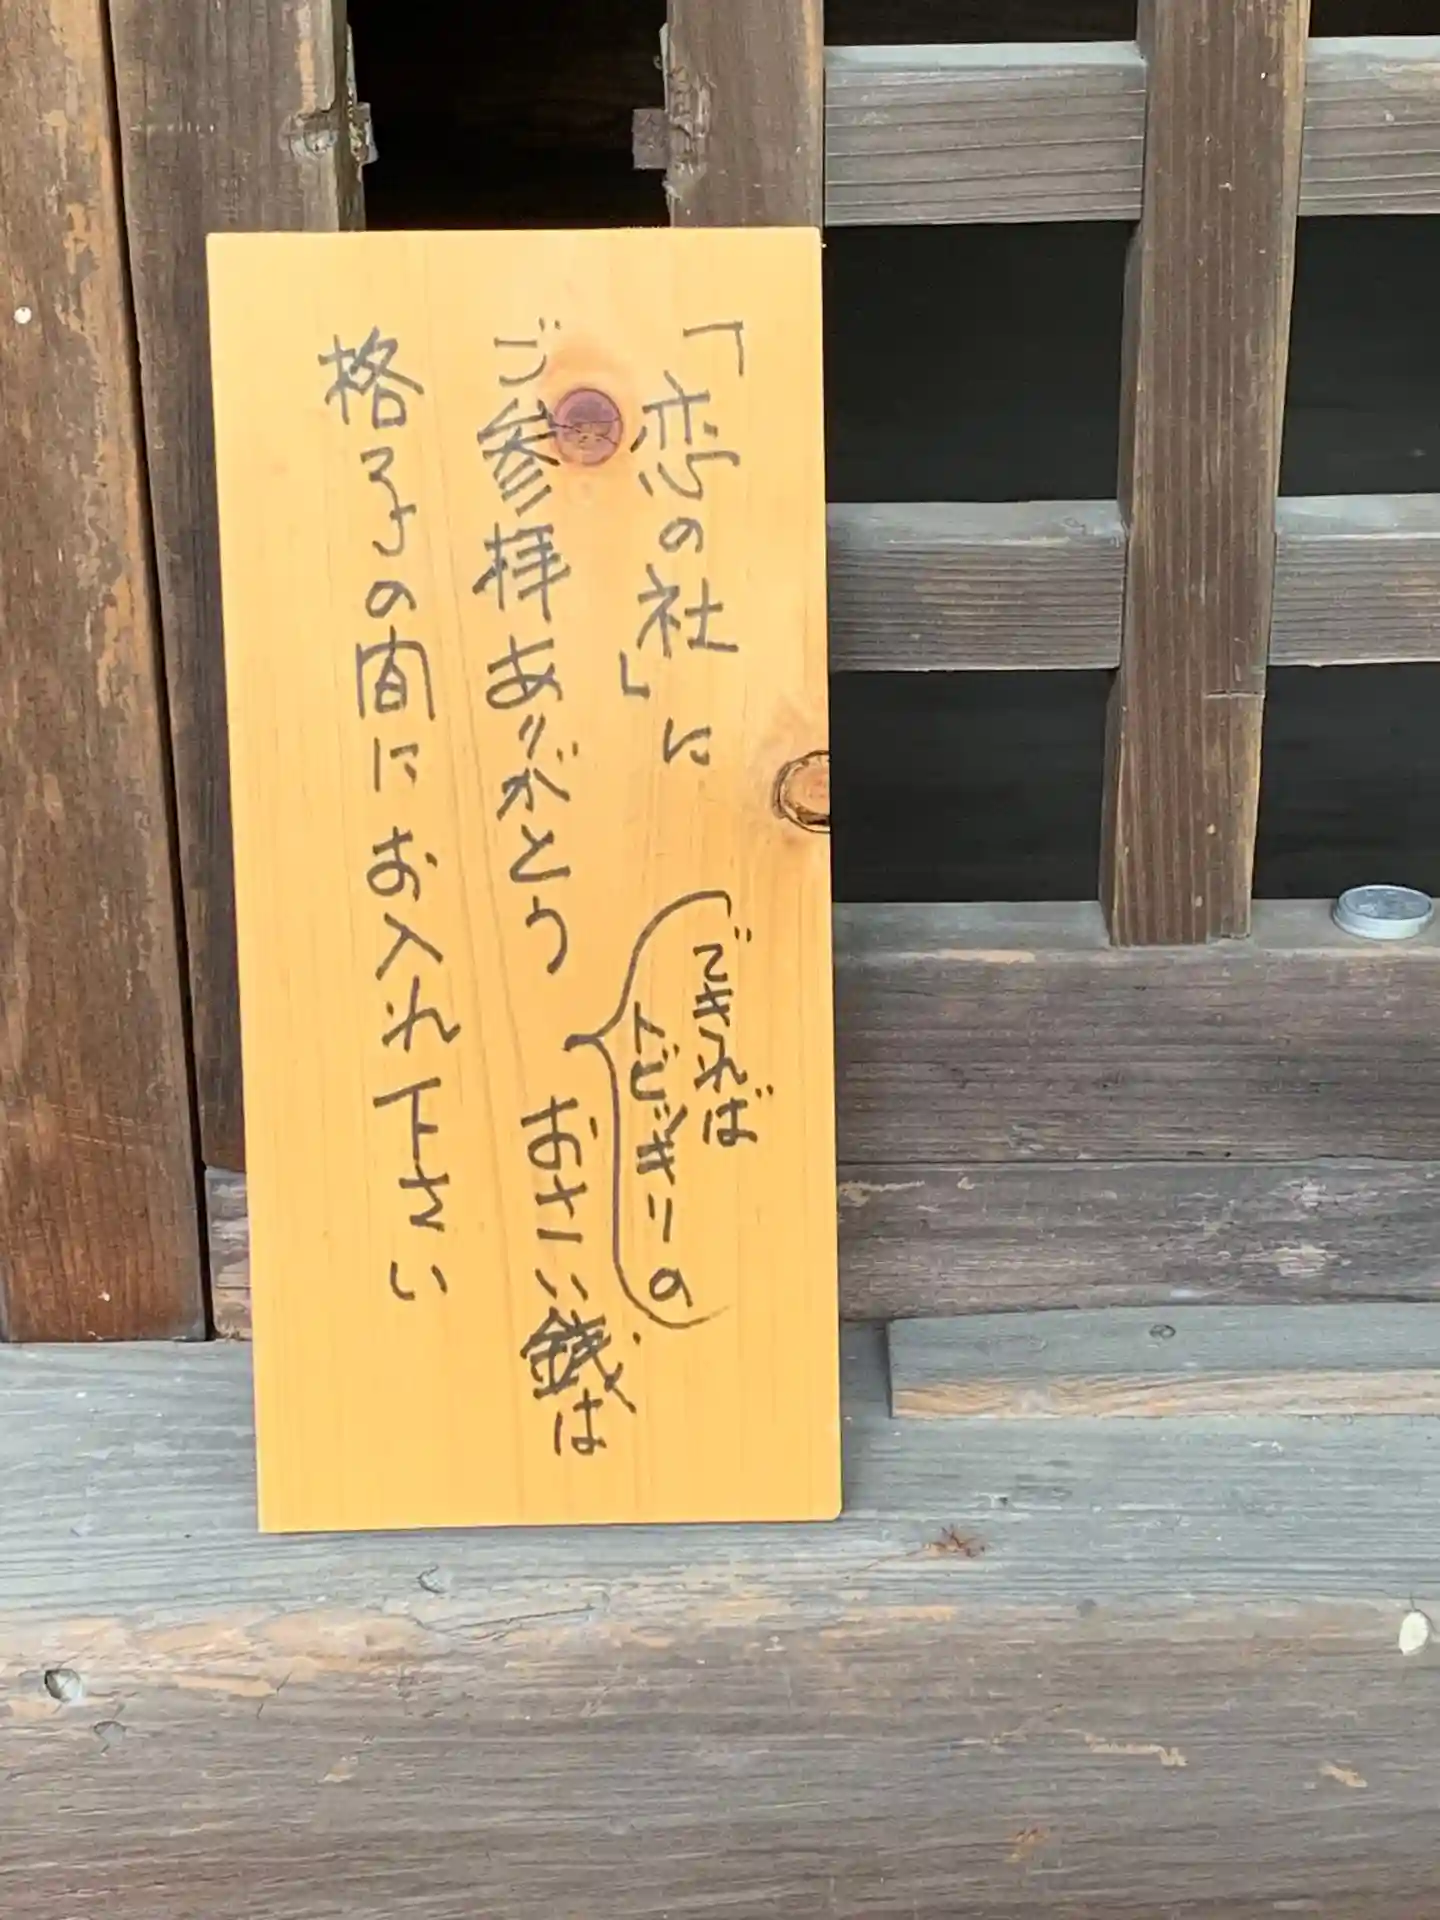 「恋の社」に
ご参拝ありがとう
できれば
トビッキリの
おさい銭は
格子の間にお入れ下さい